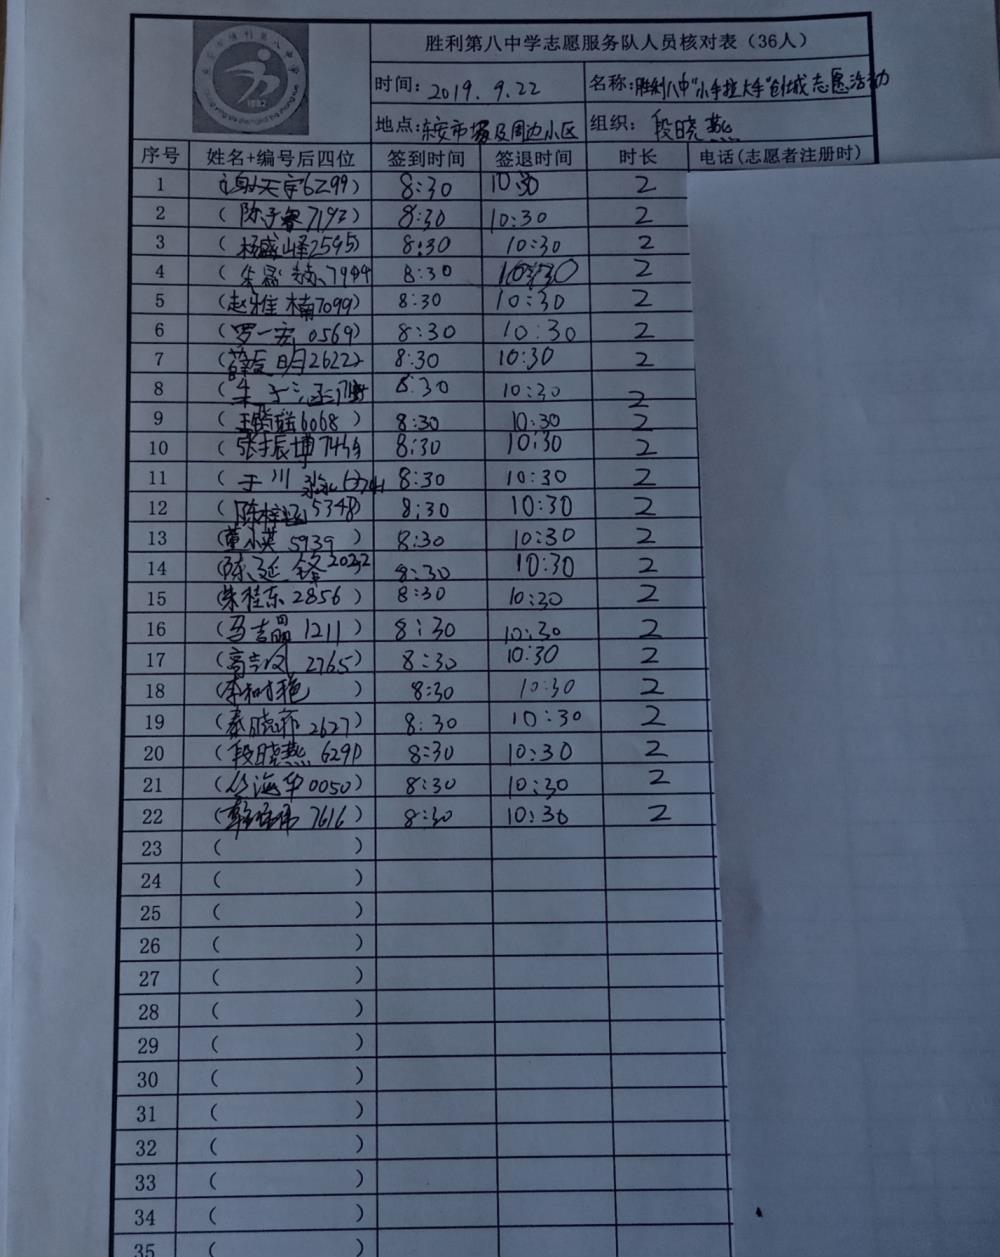 胜利第八中学志愿服务队人员核对表（36人）
时间：2019.9.22 名称：胜利八中"小手拉大手"创城志愿活动
地点：东安市场及周边小区 组织：段晓燕
序号 姓名+编号后四位 签到时间 签退时间 时长 电话(志愿者注册时)
1 （谢天宇6299） 8:30 10:30 2
2 （陈子睿7193） 8:30 10:30 2
3 （杨盛峰2595） 8:30 10:30 2
4 （ 8:30 10:30 2
5 （赵雅楠7099） 8:30 10:30 2
6 （罗一宏0569） 8:30 10:30 2
7 （薛辰明2622 8:30 10:30 2
8 （朱子涵 8:30 10:30 2
9 （王 6068） 8:30 10:30 2
10 （张振博 8:30 10:30 2
11 （于川淼 8:30 10:30 2
12 （陈梓涵5348） 8:30 10:30 2
13 （董小英 5939） 8:30 10:30 2
14 （陈延锋 8:30 10:30 2
15 （朱桂东2856） 8:30 10:30 2
16 （马吉晶 1211） 8:30 10:30 2
17 （高吉凤 2765） 8:30 10:30 2
18 （李树艳 ） 8:30 10:30 2
19 （秦晓 2627） 8:30 10:30 2
20 （段晓燕 6291） 8:30 10:30 2
21 （丛海华0050） 8:30 10:30 2
22 （ 7616） 8:30 10:30 2
23 （ ）
24 （ ）
25 （ ）
26 （ ）
27 （ ）
28 （ ）
29 （ ）
30 （ ）
31 （ ）
32 （ ）
33 （ ）
34 （ ）
35 （ ）